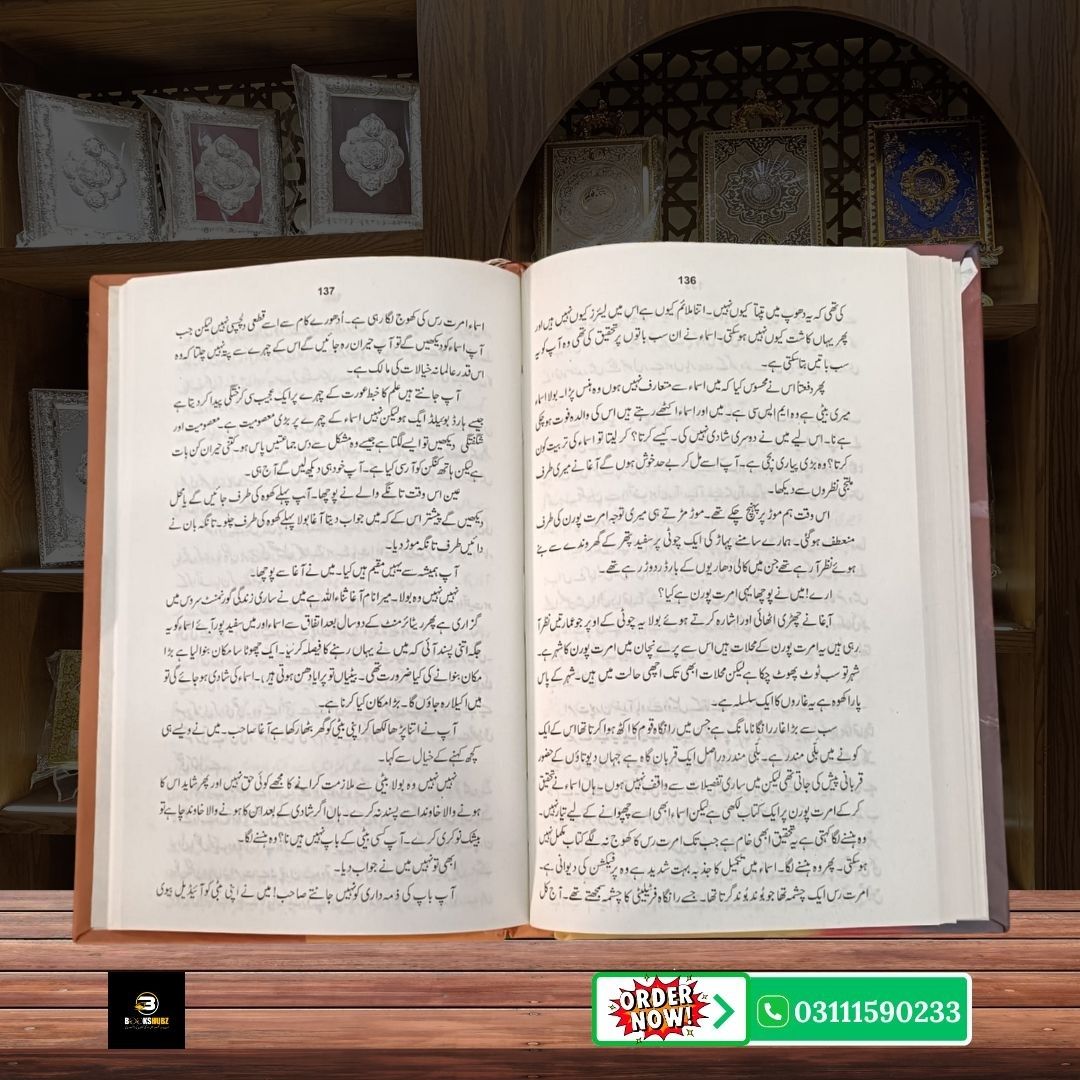 136
کی تھی کہ یہ دھوپ میں تپتا کیوں نہیں۔ اتنا ملائم کیوں ہے اس میں لیئرز کیوں نہیں ہیں اور
پھر یہاں کاشت کیوں نہیں ہوسکتی۔ اسماء نے ان سب باتوں پر تحقیق کی تھی وہ آپ کو یہ
سب باتیں بتا سکتی ہے۔
پھر دفعتاً اس نے محسوس کیا کہ میں اسماء سے متعارف نہیں ہوں وہ ہنس پڑا۔ بولا اسماء
میری بیٹی ہے وہ ایم ایس سی ہے۔ میں اور اسماء اکٹھے رہتے ہیں اس کی والدہ فوت ہوچکی
ہے نا۔ اس لیے میں نے دوسری شادی نہیں کی۔ کیسے کرتا؟ کر لیتا تو اسماء کی تربیت کون
کرتا؟ وہ بڑی پیاری بچی ہے۔ آپ اسے مل کر بے حد خوش ہوں گے آغا نے میری طرف
ملتجی نظروں سے دیکھا۔
اس وقت ہم موڑ پر پہنچ چکے تھے۔ موڑ مڑتے ہی میری توجہ امرت پورن کی طرف
منعطف ہوگئی۔ ہمارے سامنے پہاڑ کی ایک چوٹی پر سفید پتھر کے گھروندے سے بنے
ہوئے نظر آ رہے تھے جن میں کالی دھاریوں کے بارڈر دوڑ رہے تھے۔
ارے! میں نے پوچھا یہی امرت پورن ہے کیا؟
آغا نے چھڑی اٹھائی اور اشارہ کرتے ہوئے بولا یہ چوٹی کے اوپر جو عمارتیں نظر آ
رہی ہیں یہ امرت پورن کے محلات ہیں اس سے پرے نچان میں امرت پورن کا شہر ہے
شہر تو سب ٹوٹ پھوٹ چکا ہے لیکن محلات ابھی تک اچھی حالت میں ہیں۔ شہر کے پاس
پارا کھوہ ہے یہ غاروں کا ایک سلسلہ ہے۔
سب سے بڑا غار رانگا نامانگ ہے جس میں رانگاہ قوم کا اکٹھ ہوا کرتا تھا اس کے ایک
کونے میں بلّی مندر ہے۔ بلّی مندر دراصل ایک قربان گاہ ہے جہاں دیوتاؤں کے حضور
قربانی پیش کی جاتی تھی لیکن میں ساری تفصیلات سے واقف نہیں ہوں۔ ہاں اسماء نے تحقیق
کر کے امرت پورن پر ایک کتاب لکھی ہے لیکن اسماء ابھی اسے چھپوانے کے لیے تیار نہیں۔
وہ ہنسنے لگا کہتی ہے یہ تحقیق ابھی خام ہے جب تک امرت رس کا کھوج نہ لگے کتاب مکمل نہیں
ہوسکتی۔ پھر وہ ہنسنے لگا۔ اسماء میں تکمیل کا جذبہ بہت شدید ہے وہ پرفیکشن کی دیوانی ہے۔
امرت رس ایک چشمہ تھا جو بُوند بُوند گرتا تھا۔ جسے رانگاہ فرٹیلیٹی کا چشمہ سمجھتے تھے۔ آج کل
137
اسماء امرت رس کی کھوج لگا رہی ہے۔ اُدھورے کام سے اسے قطعی دلچسپی نہیں لیکن جب
آپ اسماء کو دیکھیں گے تو آپ حیران رہ جائیں گے اس کے چہرے سے پتہ نہیں چلتا کہ وہ
اس قدر عالمانہ خیالات کی مالک ہے۔
آپ جانتے ہیں علم کا خبط عورت کے چہرے پر ایک عجیب سی کرختگی پیدا کر دیتا ہے
جیسے ہارڈ بوئیلڈ ایگ ہو لیکن نہیں اسماء کے چہرے پر بڑی معصومیت ہے۔ معصومیت اور
شگفتگی دیکھیں تو ایسے لگتا ہے جیسے وہ مشکل سے دس جماعتیں پاس ہو۔ کتنی حیران کن بات
ہے لیکن ہاتھ کنگن کو آرسی کیا ہے۔ آپ خود ہی دیکھ لیں گے آج ہی۔
عین اس وقت تانگے والے نے پوچھا۔ آپ پہلے کھوہ کی طرف جائیں گے یا محل
دیکھیں گے پیشتر اس کے کہ میں جواب دیتا آغا بولا پہلے کھوہ کی طرف چلو۔ تانگہ بان نے
دائیں طرف تانگہ موڑ دیا۔
آپ ہمیشہ سے یہیں مقیم ہیں کیا۔ میں نے آغا سے پوچھا۔
نہیں نہیں وہ بولا۔ میرا نام آغا ثناءاللہ ہے میں نے ساری زندگی گورنمنٹ سروس میں
گزاری ہے پھر ریٹائرمنٹ کے دو سال بعد اتفاق سے اسماء اور میں سفید پور آئے اسماء کو یہ
جگہ اتنی پسند آئی کہ میں نے یہاں رہنے کا فیصلہ کر لیا۔ ایک چھوٹا سا مکان بنوا لیا ہے بڑا
مکان بنوانے کی کیا ضرورت تھی۔ بیٹیاں تو پرایا دھن ہوتی ہیں۔ اسماء کی شادی ہو جائے گی تو
میں اکیلا رہ جاؤں گا۔ بڑا مکان کیا کرنا ہے۔
آپ نے اتنا پڑھا لکھا کر اپنی بیٹی کو گھر بٹھا رکھا ہے آغا صاحب۔ میں نے ویسے ہی
کچھ کہنے کے خیال سے کہا۔
نہیں نہیں وہ بولا بیٹی سے ملازمت کرانے کا مجھے کوئی حق نہیں اور پھر شاید اس کا
ہونے والا خاوند اسے پسند نہ کرے۔ ہاں اگر شادی کے بعد اس کا ہونے والا خاوند چاہے تو
بیشک نوکری کرے۔ آپ کسی بیٹی کے باپ نہیں ہیں نا؟ وہ ہنسنے لگا۔
ابھی تو نہیں میں نے جواب دیا۔
آپ باپ کی ذمہ داری کو نہیں جانتے صاحب! میں نے اپنی بیٹی کو آئیڈیل بیوی
BOOKSHUBZ
ORDER NOW!
03111590233